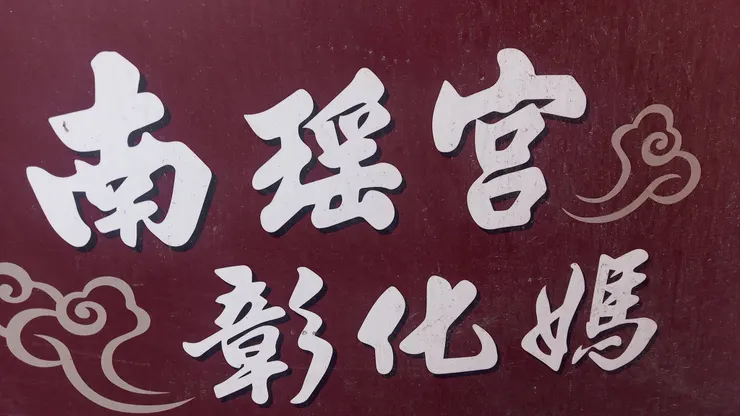 南瑶宮
彰化媽